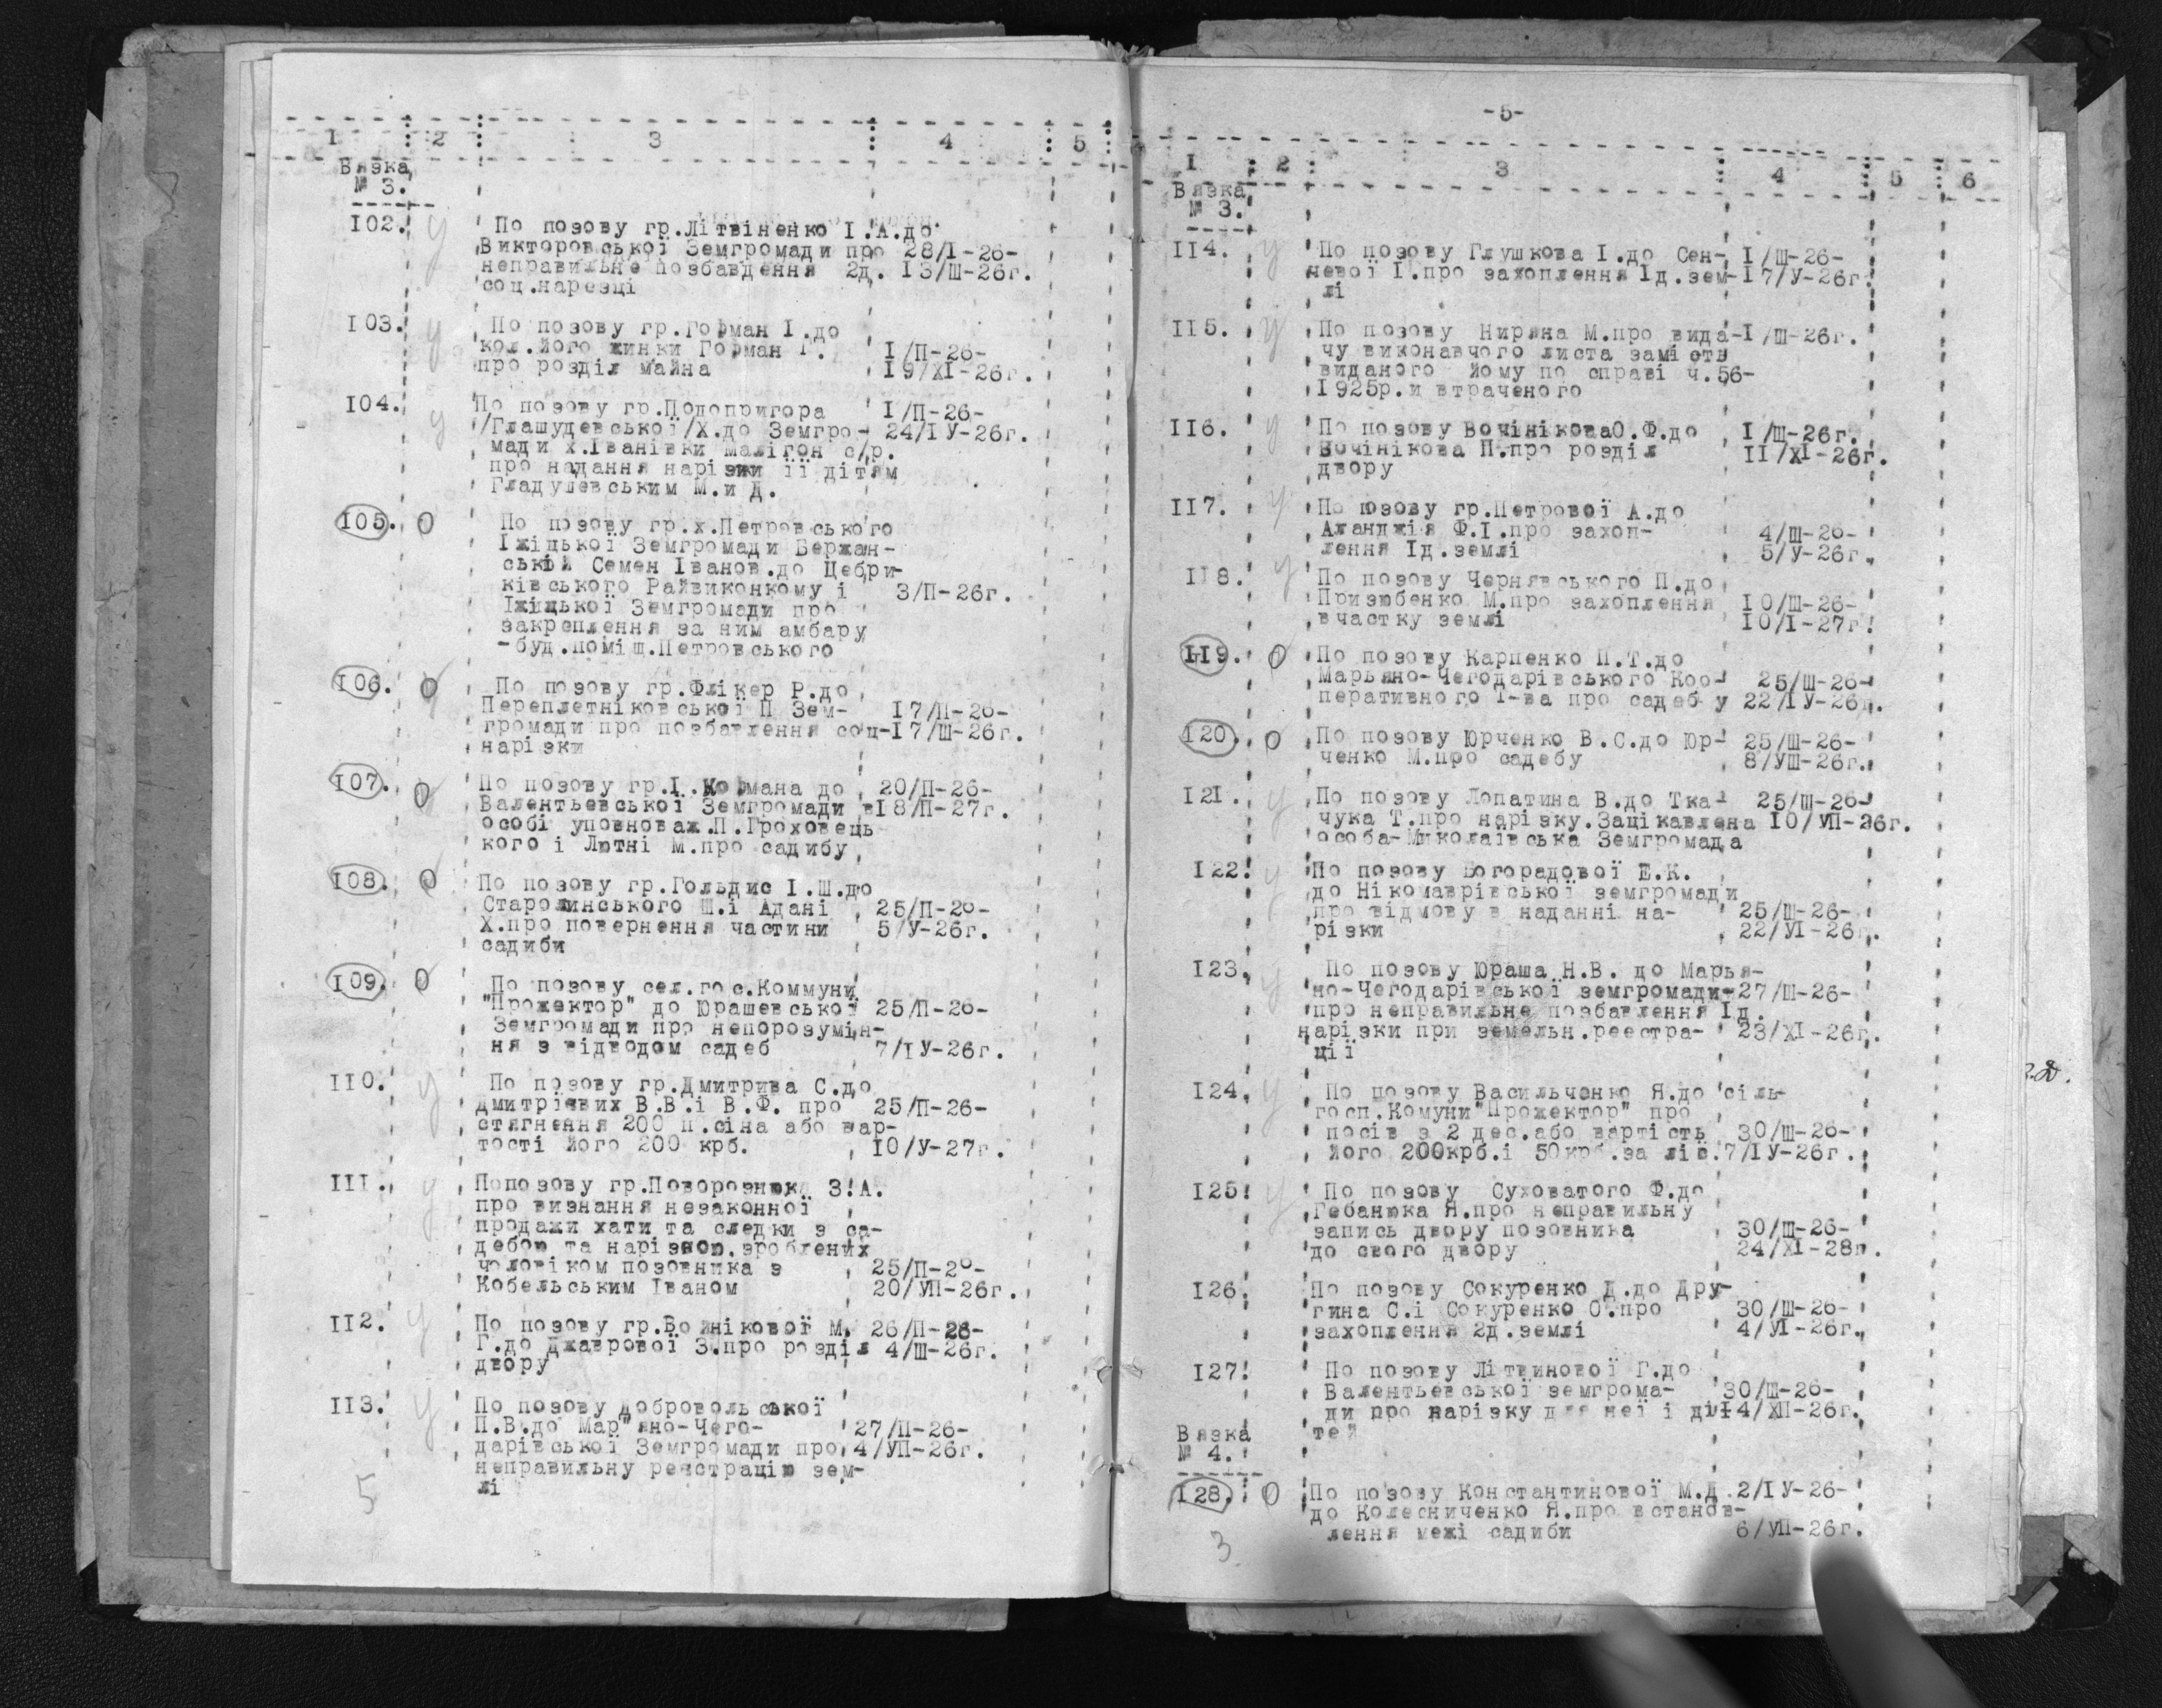 1 2 3 4 5
Вязка
№ 3.
I02. у По позову гр.Літвіненко І.А.до
Викторовської Земгромади про 28/I-26-
неправильне позбавдення 2д. I3/Ш-26г.
соц.нарезці
I03. у По позову гр.Гофман І.до
кол.його жинки Гофман Г. I/П-26-
про розділ майна I9/XI-26г.
I04. у По позову гр.Подопригора I/П-26-
/Глашудевської/Х.до Земгро- 24/IУ-26г.
мади х.Іванівки Малігон с/р.
про надання нарізки її дітям
Гладушевським М.и Д.
I05. О По позову гр.х.Петровського
Іжіцької Земгромади Бержан-
ській Семен Іванов.до Цебри-
ківського Райвиконкому і 3/П-26г.
Іжіцької Земгромади про
закреплення за ним амбару
-буд.поміщ.Петровського
I06. О По позову гр.Флікер Р.до
Переплетніковської П Зем- I7/П-26-
громади про позбавлення соц-I7/Ш-26г.
нарізки
I07. О По позову гр.І.Кофмана до 20/П-26-
Валентьевської Земгромади в I8/П-27г.
особі уповноваж.П.Гроховець-
кого і Лютні М.про садибу
I08. О По позову гр.Гольдис І.Ш.до
Старолинського Ш.і Адані 25/П-26-
Х.про повернення частини 5/У-26г.
садиби
I09. О По позову сел.гос.Коммуни
"Прожектор" до Юрашевської 25/П-26-
Земгромади про непорозумін-
ня з відводом садеб 7/IУ-26г.
II0. у По позову гр.Дмитрива С.до
Дмитрієвих В.В.і В.Ф. про 25/П-26-
стягнення 200 п.сіна або вар-
тості його 200 крб. I0/У-27г.
III. у Попозову гр.Поворознюк З.А.
про визнання незаконної
продажи хати та следки з са-
дебою та нарізкою.зроблених
чоловіком позовника з 25/П-26-
Кобельським Іваном 20/УП-26г.
II2. у По позову гр.Вожнікової М. 26/П-26-
Г.до Джаврової З.про розділ 4/Ш-26г.
двору
II3. у По позову Добровольської
П.В.до Мар"яно-Чего- 27/П-26-
дарівської Земгромади про 4/УП-26г.
неправильну реєстрацію зем-
лі
5
-5-
I 2 3 4 5 6
Вязка
№ 3.
II4. у По позову Глушкова І.до Сен- I/Ш-26-
невої І.про захоплення Ід.зем-I7/У-26г.
лі
II5. у По позову Ниряна М.про вида-I/Ш-26г.
чу виконавчого листа замість
виданого йому по справі ч.56-
I925р.и втраченого
II6. у По позову ВочініковаО.Ф.до I/Ш-26г.
Вочінікова П.про розділ II/XI-26г.
двору
II7. у По юзову гр.Петрової А.до
Аланджія Ф.І.про захоп- 4/Ш-26-
лення Ід.землі 5/У-26г.
II8. у По позову Чернявського П.до
Призюбенко М.про захоплення I0/Ш-26-
вчастку землі I0/I-27г.
II9. О По позову Карпенко П.Т.до
Марьяно-Чегодарівського Коо- 25/Ш-26-
перативного Т-ва про садебу 22/IУ-26г.
I20. О По позову Юрченко В.С.до Юр- 25/Ш-26-
ченко М.про садебу 8/УШ-26г.
I2I. у По позову Лопатина В.до Тка- 25/Ш-26-
чука Т.про нарізку.Зацікавлена I0/УП-26г.
особа-Миколаївська Земгромада
I22. у По позову Богорадової Е.К.
до Нікомаврівської земгромади
про відмову в наданні на- 25/Ш-26-
різки 22/УІ-26г.
I23. у По позову Юраша Н.В. до Марья-
но-Чегодарівської земгромади-27/Ш-26-
про неправильне позбавлення Ід.
нарізки при земельн.реестра- 23/XI-26г.
ції
I24. у По позову Васильченко Я.до сіль-
госп.Комуни"Прожектор" про
посів з 2 дес.або вартість 30/Ш-26-
його 200крб.і 50крб.за ліс.7/IУ-26г.
I25. у По позову Суховатого Ф.до
Гебанюка Я.про неправильну
запись двору позовника 30/Ш-26-
до свого двору 24/XI-28г.
I26. По позову Сокуренко Д.до Дру-
гина С.і Сокуренко О.про 30/Ш-26-
захоплення 2д.землі 4/УІ-26г.
I27. По позову Літвинової Г.до
Валентьевської земгрома- 30/Ш-26-
ди про нарізку для неї і ді-I4/XП-26г.
тей
Вязка
№ 4.
I28. О По позову Константинової М.Д.2/IУ-26-
до Колесниченко Я.про встанов-
лення межі садиби 6/УП-26г.
3